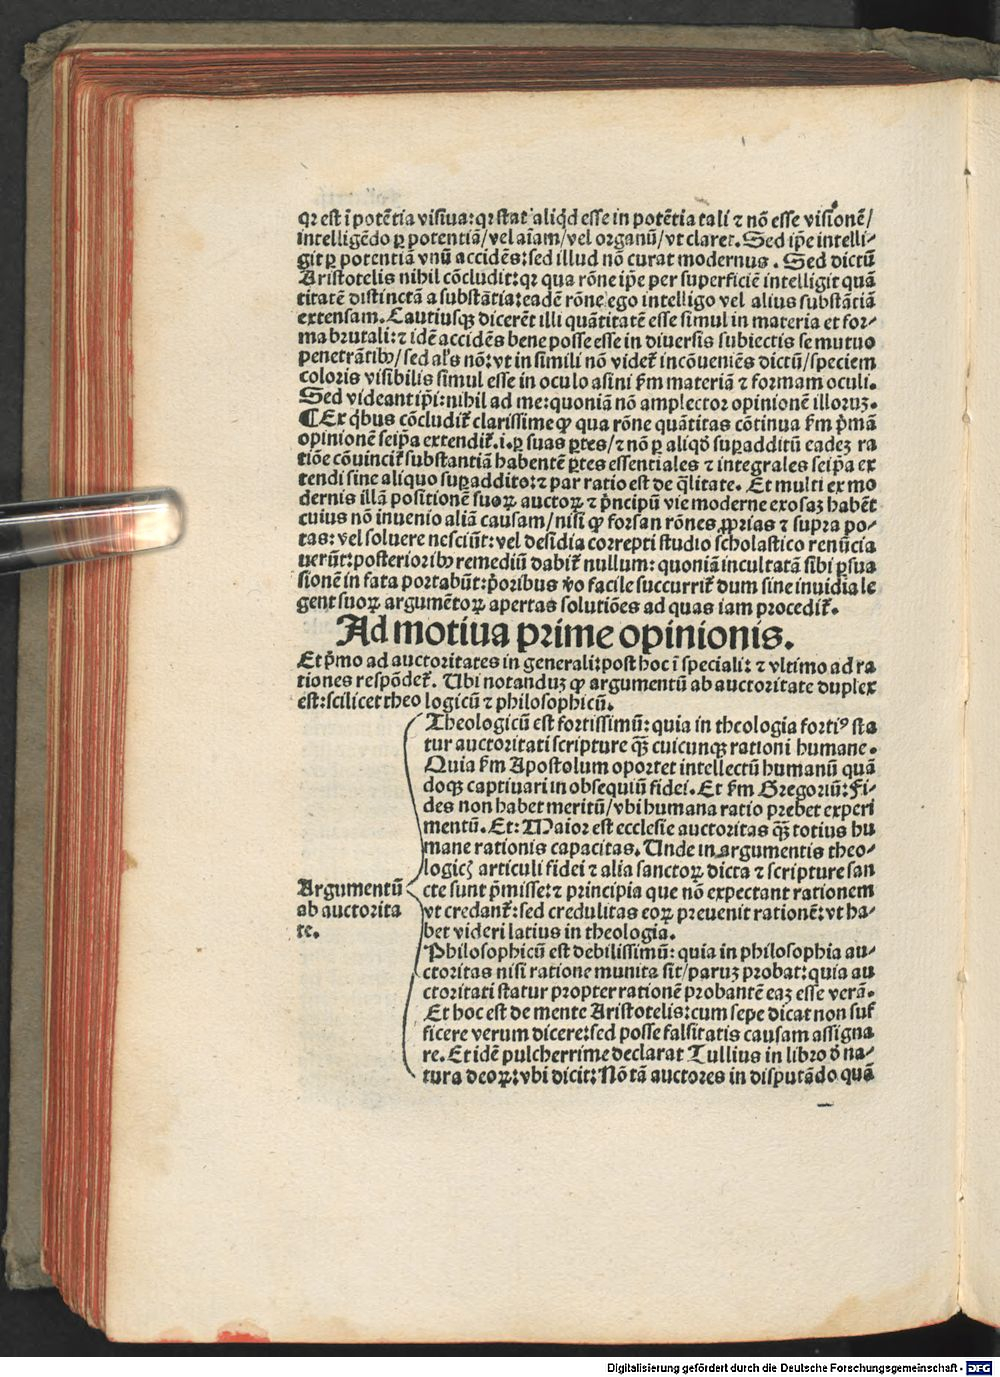 qꝛ est ī potētia visiua: qꝛ stat aliqd̓ esse in potētia tali ⁊ nō esse visionē/
intelligēdo ꝑ potentiā/ vel aīam/ vel organū/ vt claret. Sed ip̄e intelli⸗
git ꝑ potentiā vnū accidēs: sed illud nō curat modernus. Sed dictū
Aristotelis nihil cōcludit: qꝛ qua rōne ip̄e per superficiē intelligit quā
titatē distinctā a substātia: eadē rōne ego intelligo vel alius substātiā
extensam. Cautiusqꝫ dicerēt illi quātitatē esse simul in materia et for⸗
ma brutali: ⁊ idē accidēs bene posse esse in diuersis subiectis se mutuo
penetrātibꝰ/ sed al's nō: vt in simili nō videt̄ incōueniēs dictū/ speciem
coloris visibilis simul esse in oculo asini ẜm materiā ⁊ formam oculi.
Sed videant ip̄i: nihil ad me: quoniā nō amplector opinionē illoruꝫ.
¶ Ex qͥbus cōcludit̄ clarissime ꝙ qua rōne quātitas cōtinua ẜm p̓mā
opinionē seip̄a extendit̄. i. ꝑ suas ꝑtes/ ⁊ nō ꝑ aliqd̓ suꝑadditū eadeꝫ ra
tiōe cōuincit̄ substantiā habentē ꝑtes essentiales ⁊ integrales seip̄a ex
tendi sine aliquo suꝑaddito: ⁊ par ratio est de q̄litate. Et multi ex mo
dernis illā positionē suoꝝ auctoꝝ ⁊ p̓ncipū vie moderne exosaꝫ habēt
cuius nō inuenio aliā causam/ nisi ꝙ forsan rōnes ꝓprias ⁊ supra po⸗
tas: vel soluere nesciūt: vel desidia correpti studio scholastico renūcia
uerūt: posterioribꝰ remediū dabit̄ nullum: quoniā incultatā sibi ꝑsua
sionē in fata portabūt: p̓oribus v̓o facile succurrit̄ dum sine inuidia le
gent suoꝝ argumētoꝝ apertas solutiōes ad quas iam procedit̄.
Ad motiua prime opinionis.
Et p̓mo ad auctoritates in generali: post hoc ī speciali: ⁊ vltimo ad ra
tiones respōdet̄. Ubi notanduꝫ ꝙ argumentū ab auctoritate duplex
est: scilicet theologicū ⁊ philosophicū.
Argumentū
ab auctorita
te.
Theologicū est fortissimū: quia in theologia fortiꝰ sta
tur auctoritati scripture qꝫ̄ cuicunqꝫ rationi humane.
Quia ẜm Apostolum oportet intellectū humanū quā
doqꝫ captiuari in obsequiū fidei. Et ẜm Gregoriū: Fi⸗
des non habet meritū/ vbi humana ratio prebet experi
mentū. Et: Maior est ecclesie auctoritas qꝫ̄ totius hu
mane rationis capacitas. Unde in argumentis theo⸗
logicꝭ articuli fidei ⁊ alia sanctoꝝ dicta ⁊ scripture san
cte sunt p̓misse: ⁊ principia que nō expectant rationem
vt credant̄: sed credulitas eoꝝ preuenit rationē: vt ha⸗
bet videri latius in theologia.
Philosophicū est debilissimū: quia in philosophia au⸗
ctoritas nisi ratione munita sit/ paruꝫ probat: quia au
ctoritati statur propter rationē probantē eaꝫ esse verā.
Et hoc est de mente Aristotelis: cum sepe dicat non suf
ficere verum dicere: sed posse falsitatis causam assigna
re. Et idē pulcherrime declarat Tullius in libro d̓ na⸗
tura deoꝝ: vbi dicit: Nō tā auctores in disputādo quā
Digitalisierung gefördert durch die Deutsche Forschungsgemeinschaft - DFG